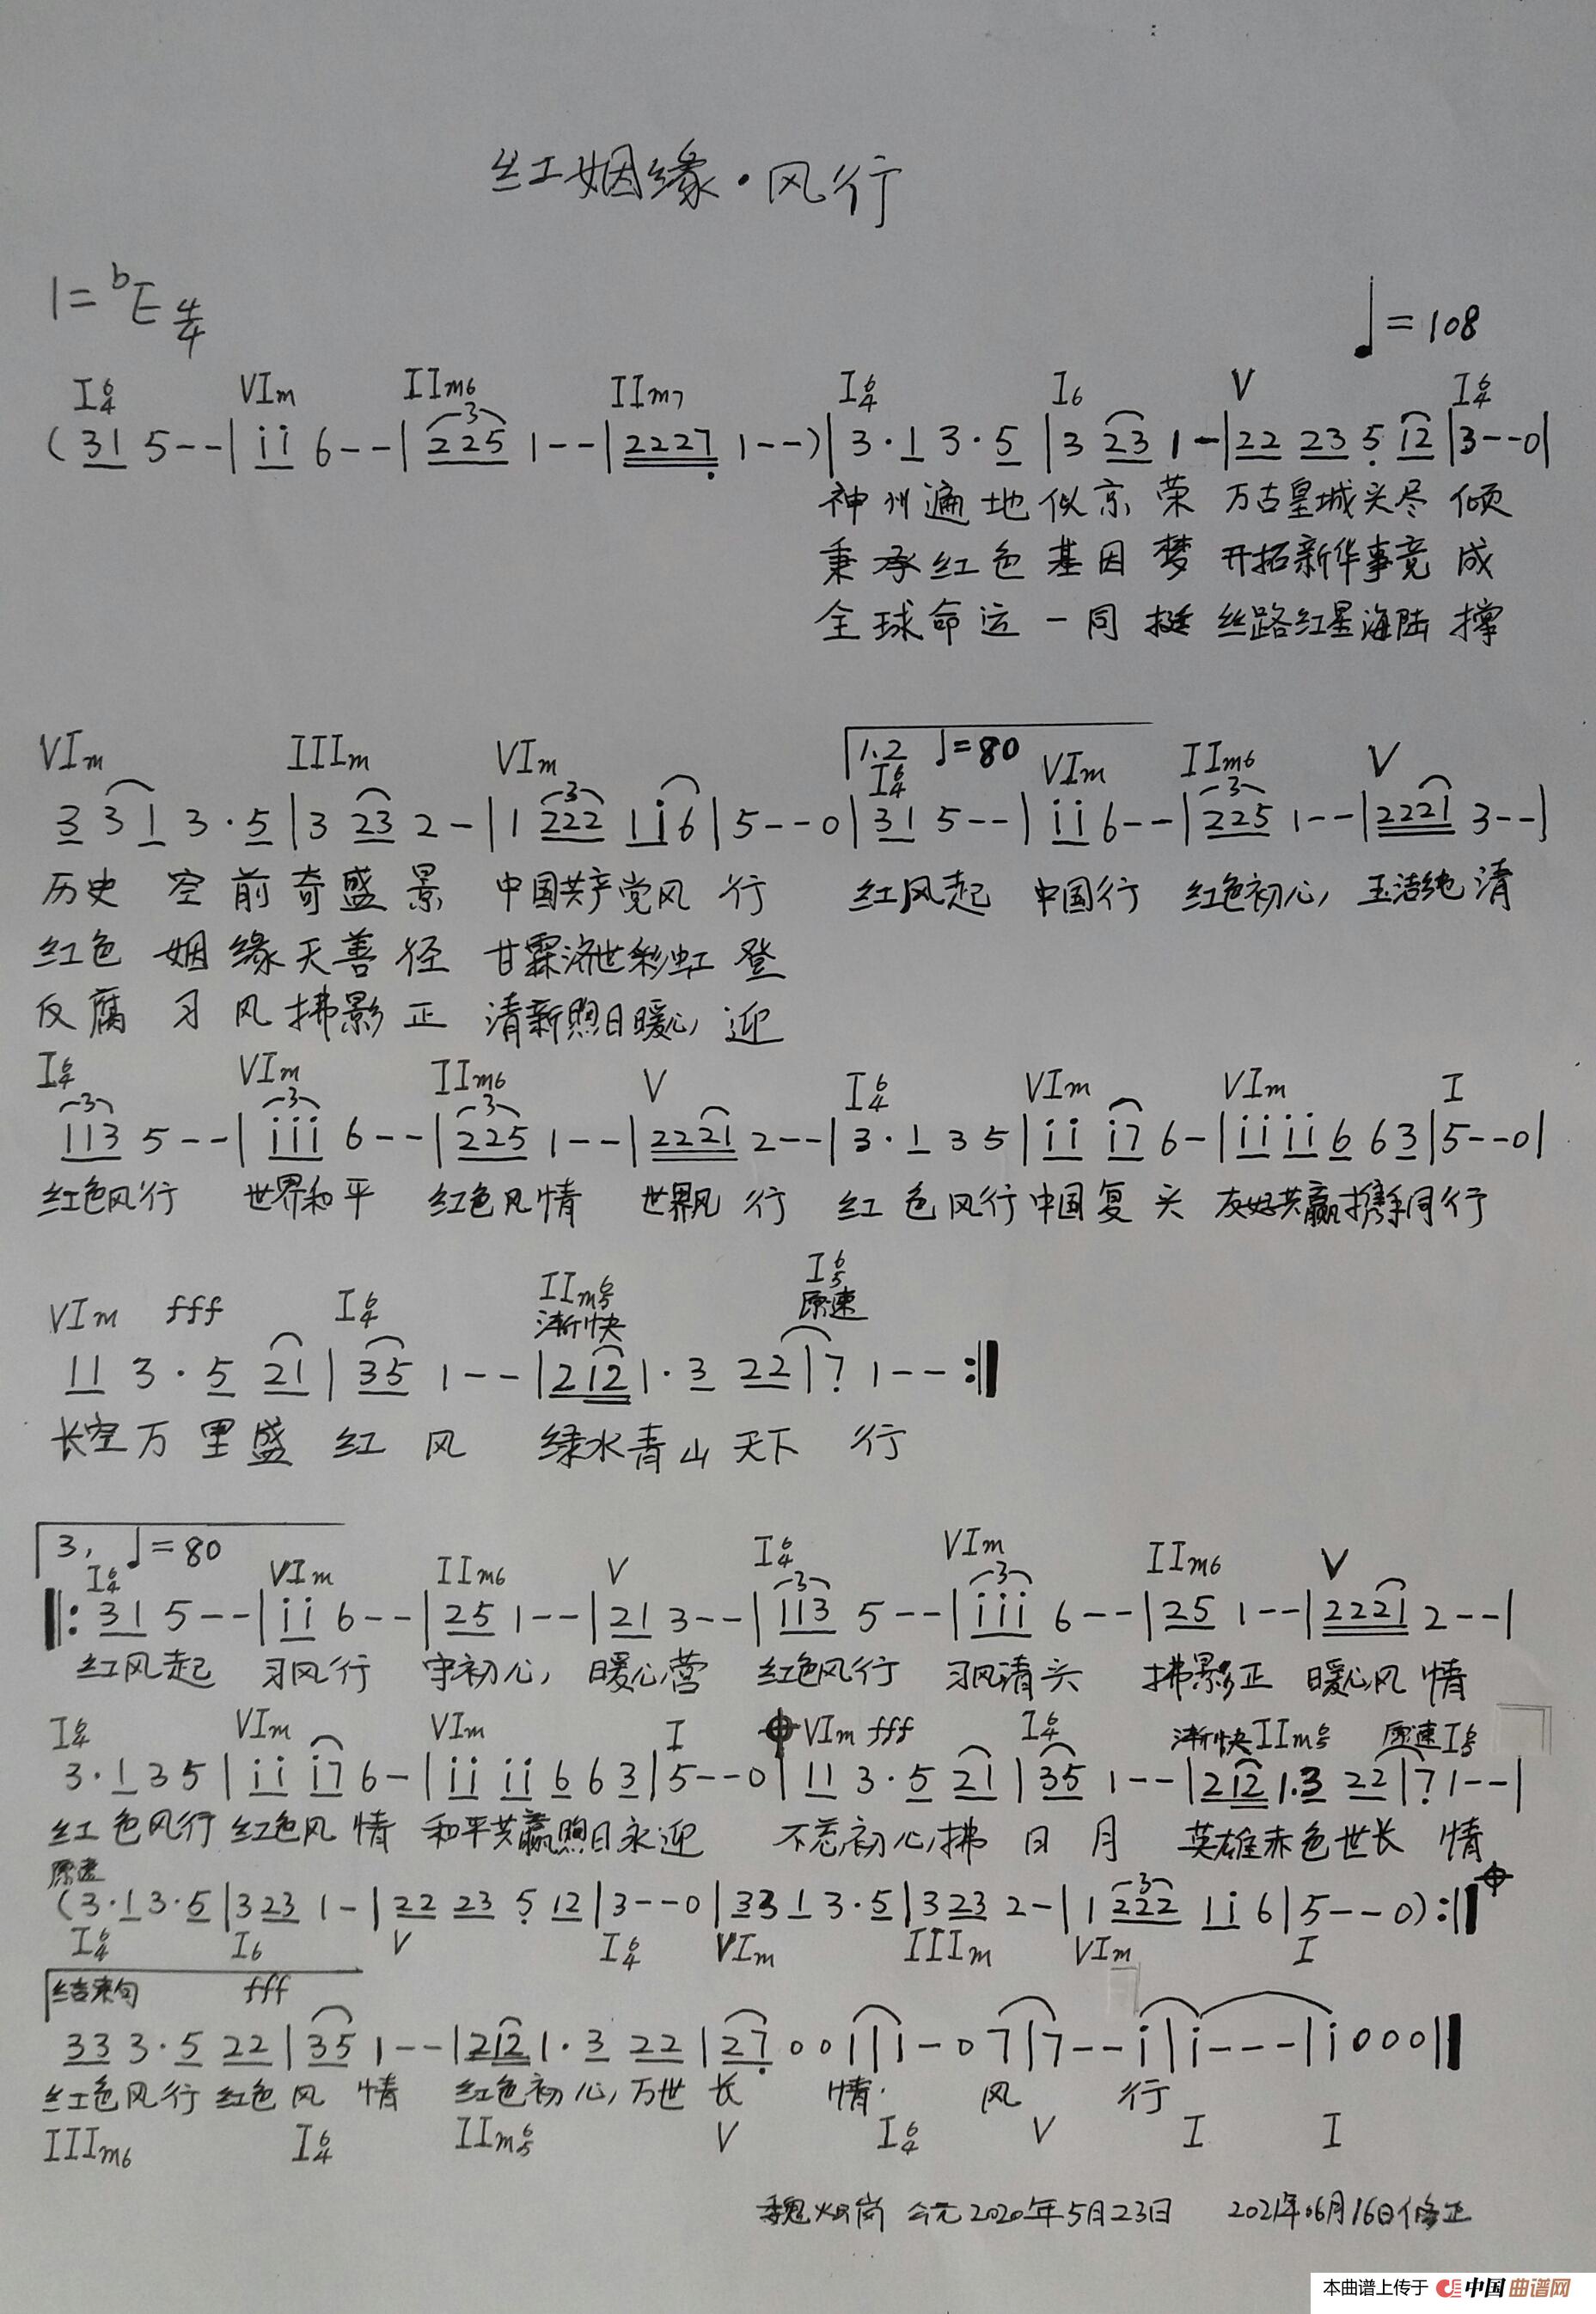 红姻缘·风行
1=ᵇE 4/4
♩=108
I⁶₄ VIm IIm6 IIm7 I⁶₄ I6 V I⁶₄
(31 5--|ii 6--|225 1--|2227 1--)|3·1 3·5|3 23 1-|22 23 5 12|3--0|
神州遍地似京荣 万古皇城尽倾
秉承红色基因梦 开拓新华事竟成
全球命运一同挺 丝路红星海陆撑
VIm IIIm VIm 1.2 ♩=80 I⁶₄ VIm IIm6 V
3 3 1 3·5|3 23 2-|1 222 1i6|5--0|31 5--|ii 6--|225 1--|2221 3--|
历史空前奇盛景 中国共产党风行 红风起 中国行 红色初心, 玉洁纯清
红色姻缘天善径 甘霖济世彩虹登
反腐习风拂影正 清新煦日暖心迎
I⁶₄ VIm IIm6 V I⁶₄ VIm VIm I
113 5--|iii 6--|225 1--|2221 2--|3·1 35|ii i7 6-|ii ii 6 63|5--0|
红色风行 世界和平 红色风情 世界风行 红色风行中国复兴 友好共赢携手同行
VIm fff I⁶₄ IIm⁶₅ 渐快 I⁶₅ 原速
11 3·5 21|35 1--|212 1·3 22|7 1--:‖
长空万里盛红风 绿水青山天下行
3, ♩=80
I⁶₄ VIm IIm6 V I⁶₄ VIm IIm6 V
‖:31 5--|ii 6--|25 1--|21 3--|113 5--|iii 6--|25 1--|2221 2--|
红风起 习风行 守初心, 暖心营 红色风行 习风清 拂影正 暖心风情
I⁶₄ VIm VIm I VIm fff I⁶₄ 渐快IIm⁶₅ 原速I⁶₅
3·1 35|ii i7 6-|ii ii 6 63|5--0|11 3·5 21|35 1--|212 1·3 22|7 1--|
红色风行红色风情 和平共赢煦日永迎 不忘初心拂日月 英雄赤色世长情
原速
(3·1 3·5|3 23 1-|22 23 5 12|3--0|33 1 3·5|3 23 2-|1 222 1i 6|5--0):‖
I⁶₄ I6 V I⁶₄ VIm IIIm VIm I
结束句 fff
33 3·5 22|35 1--|212 1·3 22|27 0 0 1|1-0 7|7--i|i---|i000‖
红色风行红色风情 红色初心, 万世长情 风行
IIIm6 I⁶₄ IIm⁶₅ V I⁶₄ V I I
魏 岗 公元2020年5月23日 2021年06月16日修正
本曲谱上传于 中国曲谱网